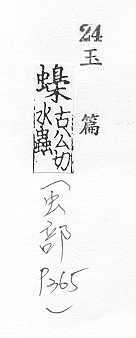 24 玉篇
蟂 古公切
水蟲
(虫部 P365)